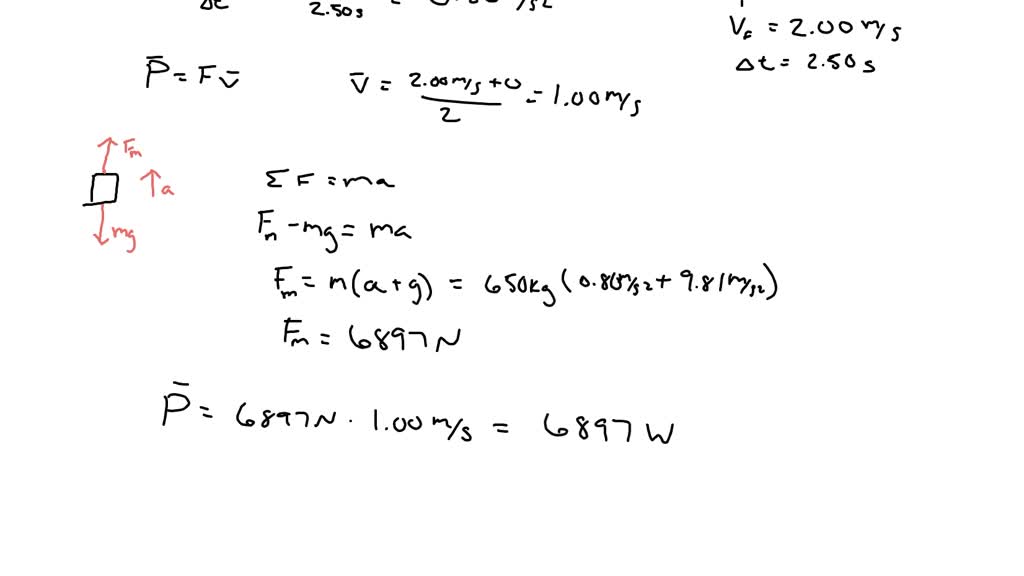 Δt 2.50s
V_f = 2.00 m/s
Δt = 2.50 s
P̄ = F v̄
v̄ = (2.00 m/s + 0)/2 = 1.00 m/s
F_m
a
mg
Σ F = ma
F_m - mg = ma
F_m = m(a+g) = 650kg (0.80 m/s2 + 9.81 m/s2)
F_m = 6897 N
P̄ = 6897 N · 1.00 m/s = 6897 W